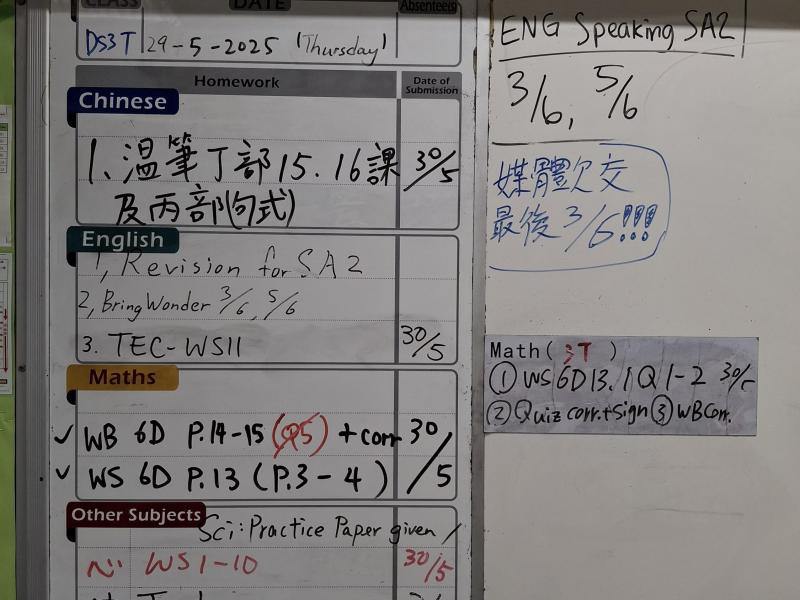 CLASS DATE Absentees
DS3T 29-5-2025 (Thursday)
Homework Date of Submission
Chinese
1. 溫筆丁部15.16課 30/5
及丙部(句式)
English
1, Revision for SA2
2, Bring Wonder 3/6, 5/6
3. TEC-WS11 30/5
Maths
✓ WB 6D P.14-15 (Q5) + corr 30/5
✓ WS 6D P.13 (P.3-4)
Other Subjects
Sci: Practice Paper given /
WS1-10 30/5
ENG Speaking SA2
3/6, 5/6
媒體欠交
最後 3/6!!!
Math (3T)
① WS 6D13.1Q1-2 30/5
② Quiz corr.+sign ③ WB Corr.